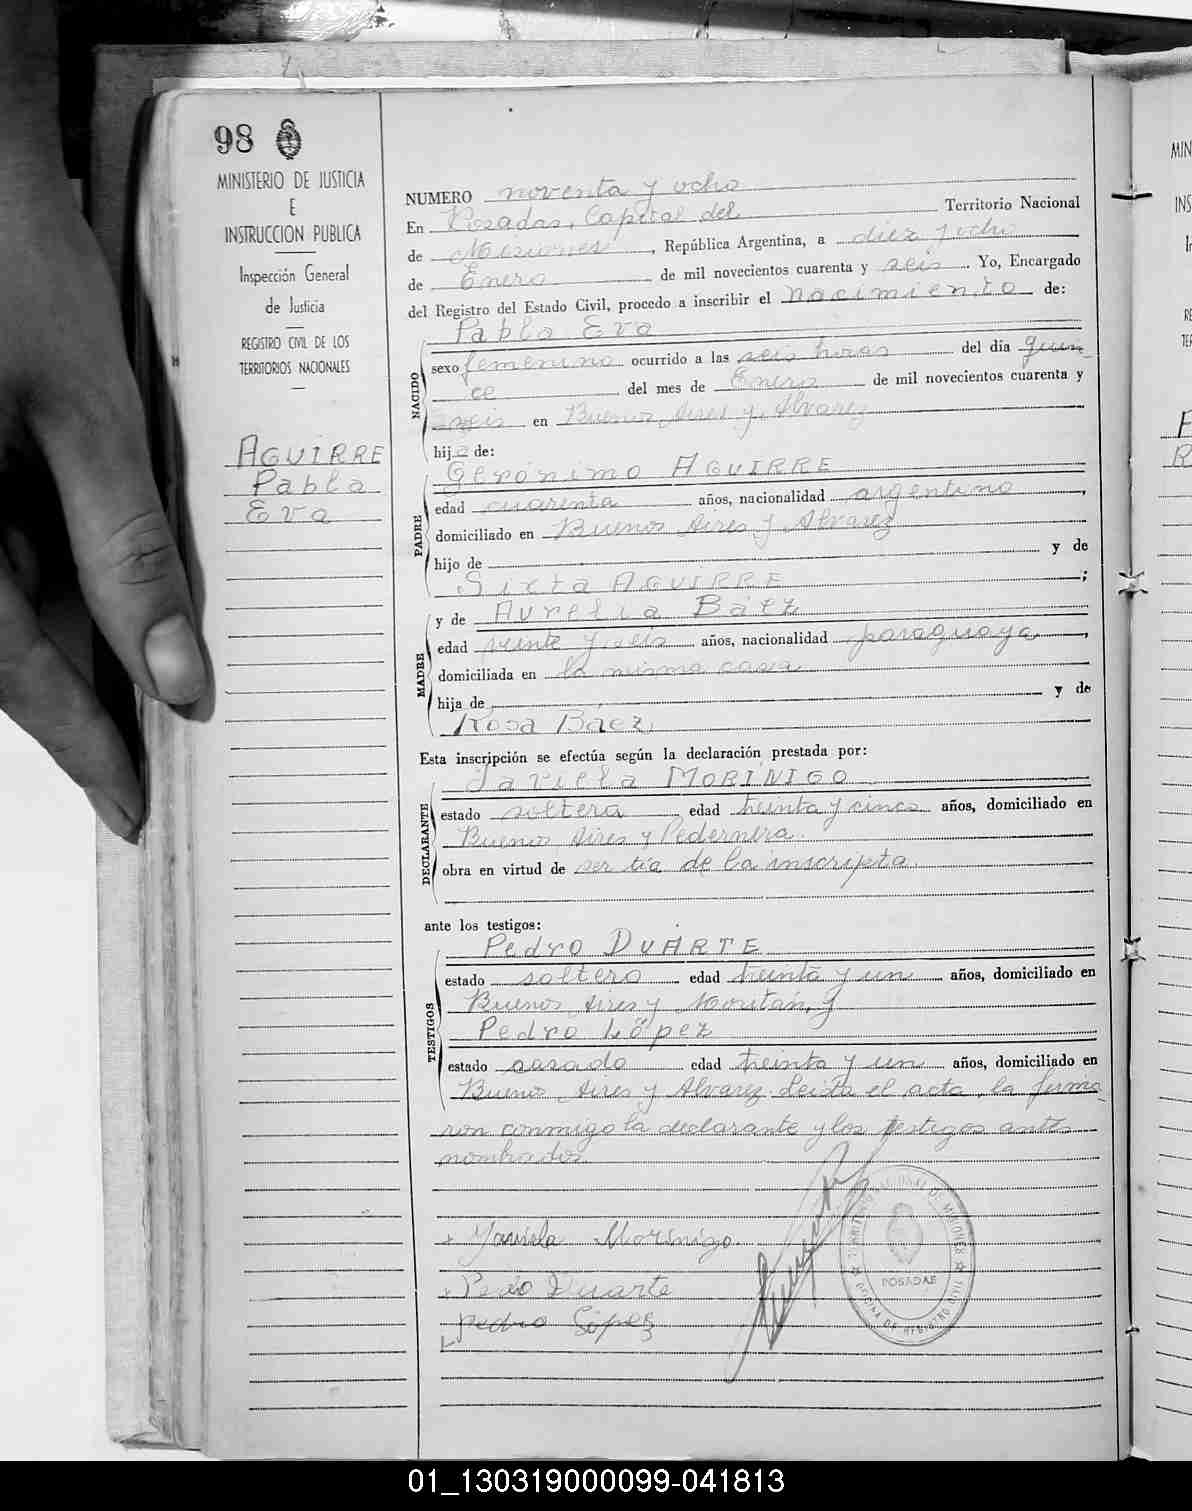 98
MINISTERIO DE JUSTICIA
E
INSTRUCCION PUBLICA
Inspección General
de Justicia
REGISTRO CIVIL DE LOS
TERRITORIOS NACIONALES
AGUIRRE
Pabla
Eva
NUMERO noventa y ocho
En Posadas, Capital del Territorio Nacional
de Misiones, República Argentina, a diez y ocho
de Enero de mil novecientos cuarenta y seis. Yo, Encargado
del Registro del Estado Civil, procedo a inscribir el nacimiento de:
Pabla Eva
NACIDO
sexo femenino ocurrido a las seis horas del día quin-
ce del mes de Enero de mil novecientos cuarenta y
seis en Buenos Aires y Alvarez
hija de:
Gerónimo AGUIRRE
PADRE
edad cuarenta años, nacionalidad argentino,
domiciliado en Buenos Aires y Alvarez
hijo de y de
Sixta AGUIRRE;
y de Aurelia Báez
MADRE
edad veinte y seis años, nacionalidad paraguaya,
domiciliada en la misma casa
hija de y de
Rosa Báez
Esta inscripción se efectúa según la declaración prestada por:
Javiela MORINIGO
DECLARANTE
estado soltera edad treinta y cinco años, domiciliado en
Buenos Aires y Pedernera
obra en virtud de ser tía de la inscripta.
ante los testigos:
Pedro DUARTE
TESTIGOS
estado soltero edad treinta y un años, domiciliado en
Buenos Aires y y
Pedro López
estado casado edad treinta y un años, domiciliado en
Buenos Aires y Alvarez. Leída el acta, la firma-
ron conmigo la declarante y los testigos antes
nombrados.
Javiela Morinigo
Pedro Duarte
Pedro López
TERRITORIO NACIONAL DE MISIONES
POSADAS
OFICINA DE REGISTRO CIVIL
01_130319000099-041813